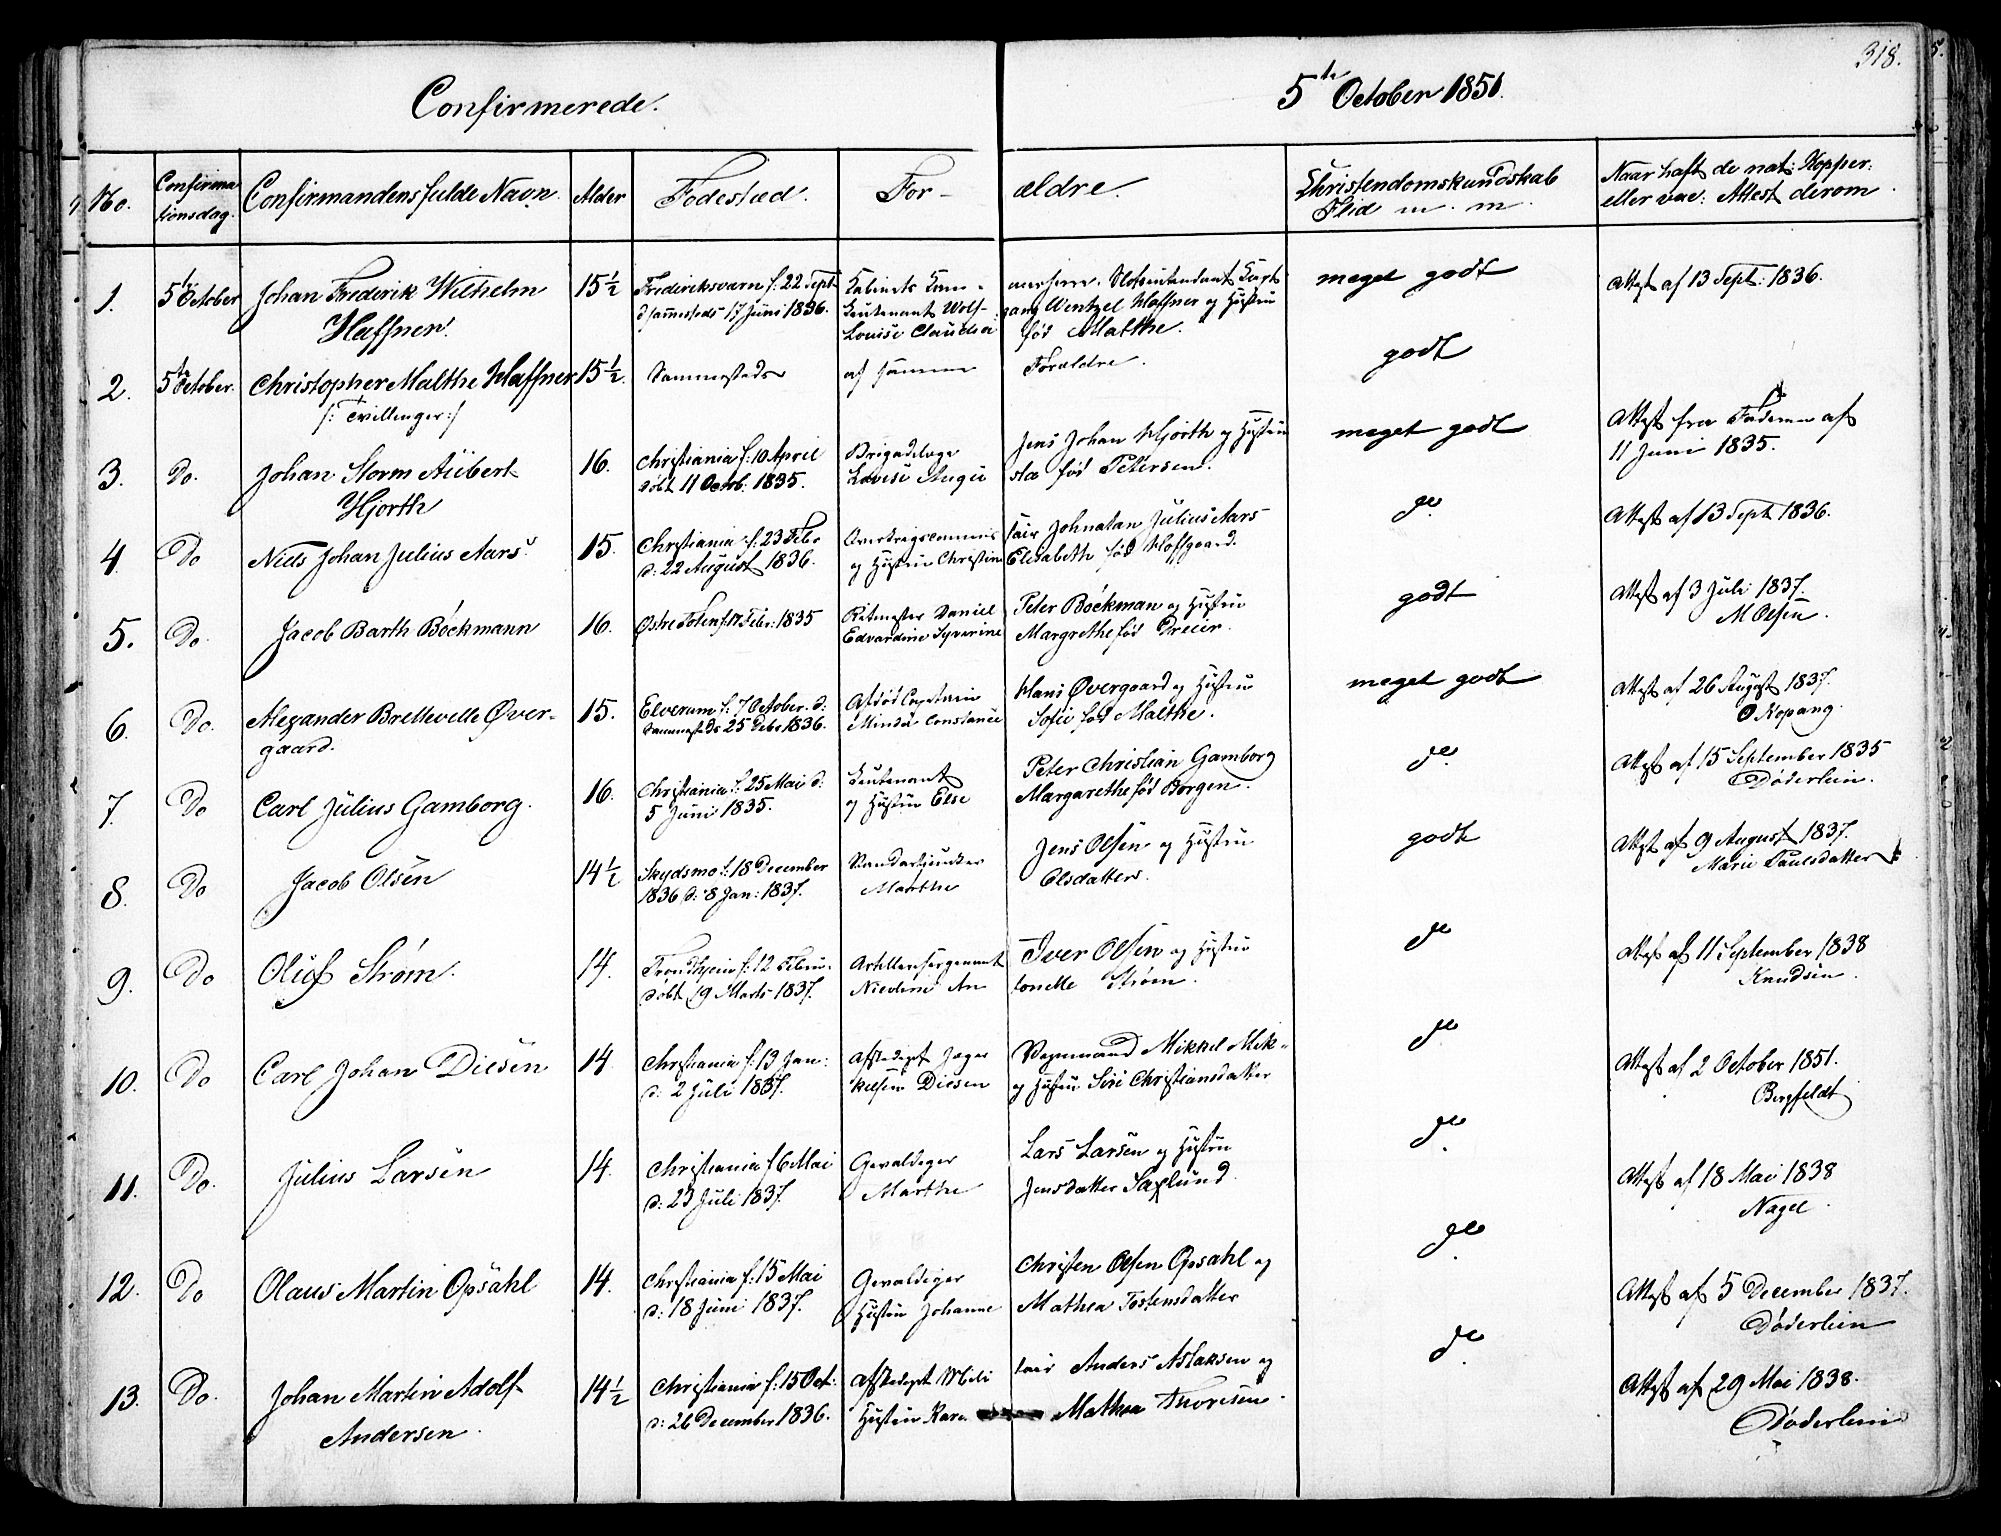 318.
Confirmerede.
5te October 1851.
No.
Confirma
tionsdag.
Confirmandens fulde Navn.
Alder
Fødested.
For-
ældre.
Christendomskundskab
Flid m. m.
Naar haft de nat: Kopper:
eller vac: Attest derom.
1.
5te October
Johan Frederik Wilhelm
Haffner.
15 1/2
Frederiksværn f: 22 Sept
d sammesteds 17 Juni 1836.
Kabinets Kam-
Leutenant Wolf-
Louise Claudia
merherre, Slotsintendant
gang Wentzel Haffner og Hustru
fød Malthe.
meget godt
Attest af 13 Sept: 1836.
2.
5te October.
Christopher Malthe Haffner
/: Tvillinger :/
15 1/2.
Sammesteds
af samme
Forældre.
godt
3.
Do.
Johan Storm Aubert
Hjorth
16.
Christiania f: 10 April
døbt 11 Octob: 1835.
Brigadelæge
Lovise Augu
Jens Johan Hjorth og Hustru
sta fød Petersen.
meget godt
Attest fra Faderen af
11 Juni 1835.
4.
Do
Niels Johan Julius Aars
15.
Christiania f: 23 Febr
d: 22 August 1836.
Overkrigscommis
og Hustru Christine
sair Johnatan Julius Aars
Elisabeth fød Hoffgaard.
do.
Attest af 13 Sept 1836.
5.
Do.
Jacob Barth Böckmann
16.
Østre Toten f. 17 Febr: 1835
Ritmester Daniel
Edvardine Syverine
Peter Böckman og Hustru
Margrethe fød Dreier.
godt
Attest af 3 Juli 1837.
M Olsen.
6.
Do.
Alexander Bretteville Øver-
gaard.
15.
Elverum f: 7 October. d:
Sammesteds 25 Debr 1836.
Afdød Captain
Minda Constance
Hans Øvergaard og Hustru
Sofie fød Malthe.
meget godt
Attest af 26 August 1837.
O Kopang.
7.
Do
Carl Julius Gamborg.
16.
Christiania f: 25 Mai d:
5 Juni 1835.
Leutenant
og Hustru Else
Peter Christian Gamborg
Margarethe fød Borgen.
do.
Attest af 15 September 1835
Døderlein.
8.
Do
Jacob Olsen
14 1/2
Skydsmo f: 18 December
1836 d: 8 Jan: 1837.
Marthe
Jens Olsen og Hustru
Olsdatter.
godt
Attest af 9 August 1837.
Marie Paulsdatter
9.
Do
Oluf Strøm.
14.
Trondhjem f: 12 Febru-
døbt 19 Marts 1837.
Artillerisergeant
An
Iver Olsen og Hustru
tonette Strøm.
do
Attest af 11 September 1838
Knudsen.
10.
Do
Carl Johan Diesen
14
Christiania f: 13 Jan:
d: 2 Juli 1837.
Afskediget Jæger
kelsen Diesen
Vognmand Mikkel Mik-
og Hustru Siri Christiansdatter
do
Attest af 2 October 1851.
Bergfeldt
11.
Do.
Julius Larsen
14.
Christiania f 6 Mai
d: 23 Juli 1837.
Gevaldiger
Marthe
Lars Larsen og Hustru
Jensdatter Saxlund.
do.
Attest af 18 Mai 1838
Nagel.
12.
Do
Olaus Martin Opsahl
14.
Christiania f: 15 Mai
d: 18 Juni 1837.
Gevaldiger
Hustru Johanne
Christen Olsen Opsahl og
Mathea Tostensdatter
do.
Attest af 5 December 1837.
Døderlein
13.
Do.
Johan Martin Adolf
Andersen.
14 1/2
Christiania f: 15 Oct:
d: 26 December 1836.
Afskediget Mili
Hustru Karen
tair Anders Aslaksen og
Mathea Thoresen.
do.
Attest af 29 Mai 1838.
Døderlein